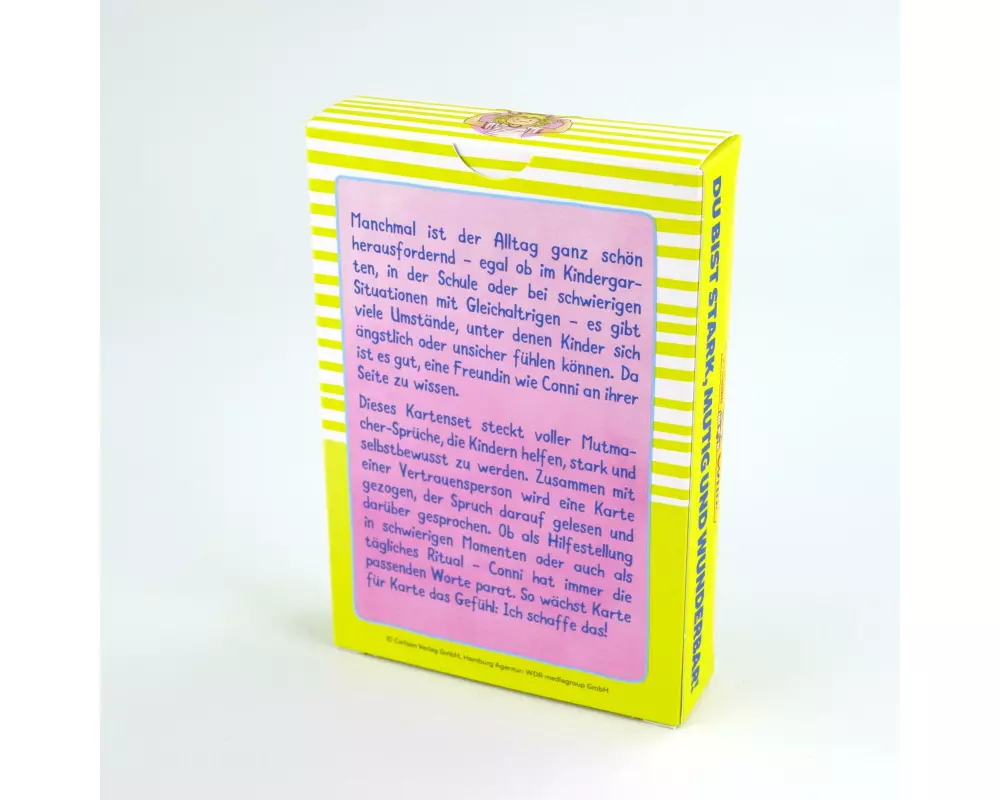 Manchmal ist der Alltag ganz schön
herausfordernd – egal ob im Kindergar-
ten, in der Schule oder bei schwierigen
Situationen mit Gleichaltrigen – es gibt
viele Umstände, unter denen Kinder sich
ängstlich oder unsicher fühlen können. Da
ist es gut, eine Freundin wie Conni an ihrer
Seite zu wissen.
Dieses Kartenset steckt voller Mutma-
cher-Sprüche, die Kindern helfen, stark und
selbstbewusst zu werden. Zusammen mit
einer Vertrauensperson wird eine Karte
gezogen, der Spruch darauf gelesen und
darüber gesprochen. Ob als Hilfestellung
in schwierigen Momenten oder auch als
tägliches Ritual – Conni hat immer die
passenden Worte parat. So wächst Karte
für Karte das Gefühl: Ich schaffe das!
© Carlsen Verlag GmbH, Hamburg Agentur: WDR mediagroup GmbH
DU BIST STARK, MUTIG UND WUNDERBAR!